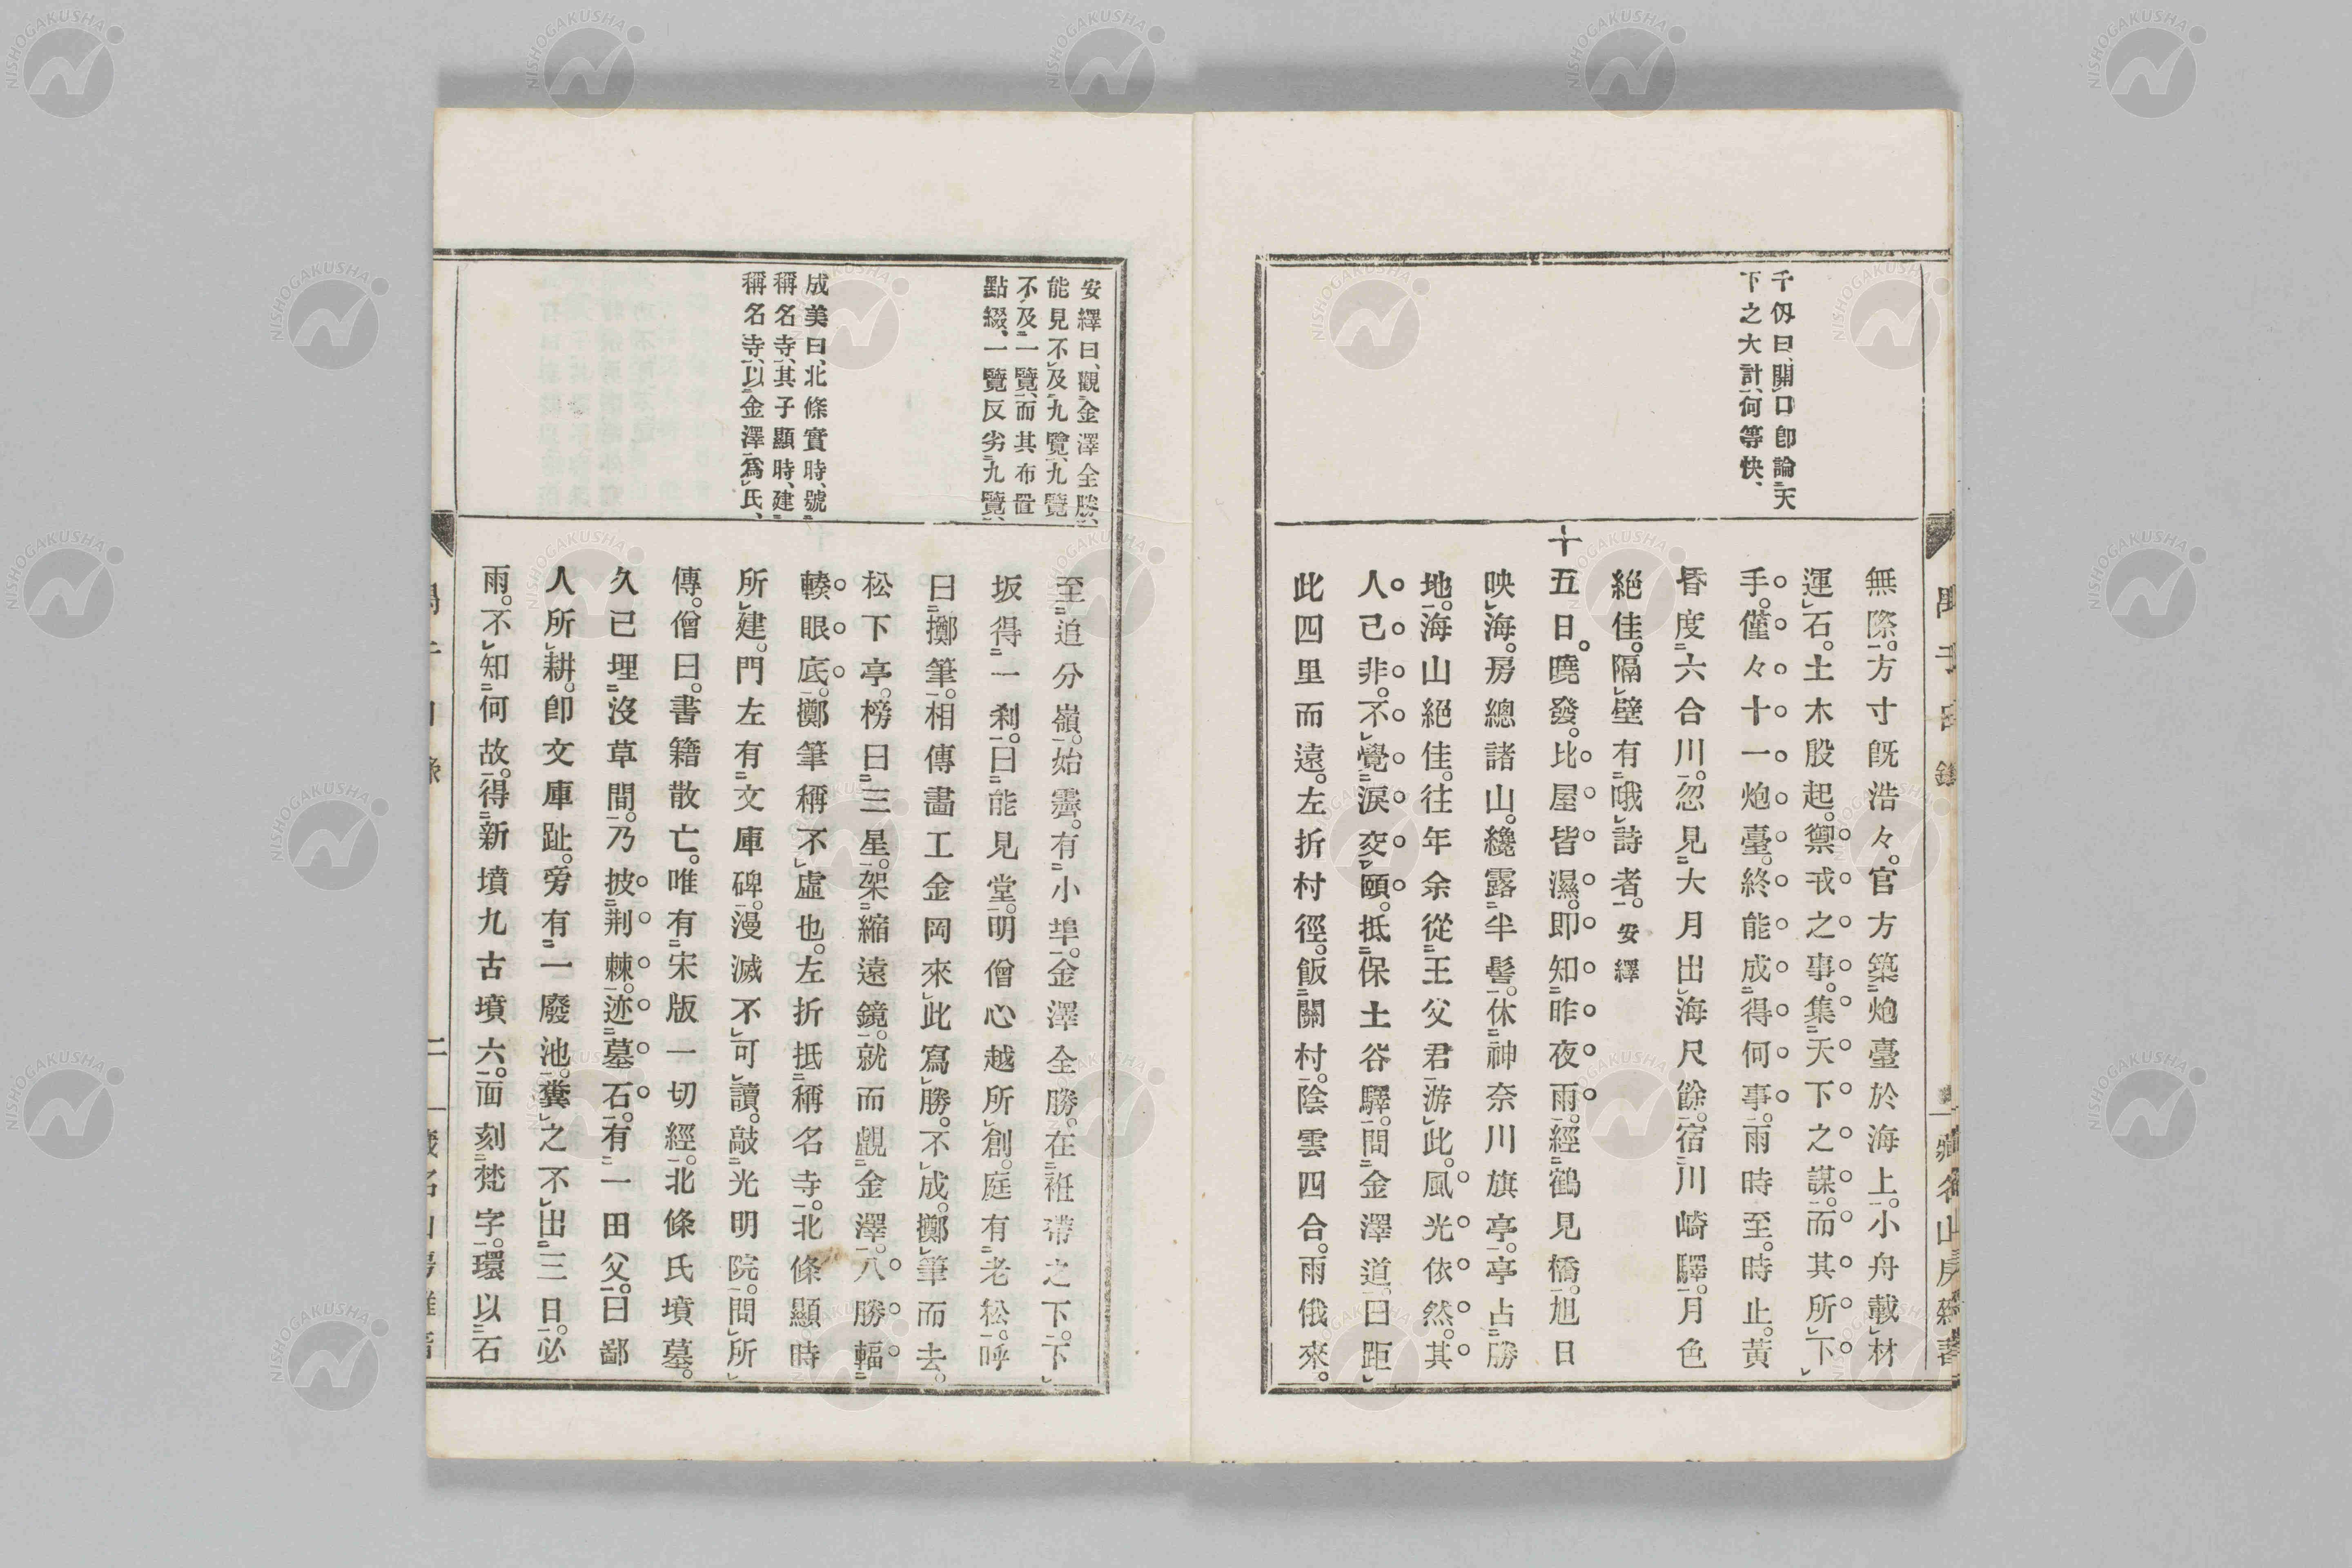 千仭曰、開口卽論天
下之大計、何等快、
無際。方寸旣浩々。官方築炮臺於海上。小舟載材
運石。土木殷起。禦戎之事。集天下之謀。而其所下
手。僅々十一炮臺。終能成得何事。雨時至。時止。黃
昏度六合川。忽見大月出海尺餘。宿川崎驛。月色
絕佳。隔壁有哦詩者。安繹
十五日。曉發。比屋皆濕。卽知昨夜雨。經鶴見橋。旭日
映海。房總諸山。纔露半髻。休神奈川旗亭。亭占勝
地。海山絕佳。往年余從王父君游此。風光依然。其
人已非。不覺淚交頤。抵保土谷驛。問金澤道。曰距
此四里而遠。左折村徑。飯關村。陰雲四合。雨俄來。
安繹曰、觀金澤全勝、
能見不及九覽、九覽
不及一覽、而其布置
點綴、一覽反劣九覽、
成美曰、北條實時、號
稱名寺、其子顯時、建
稱名寺、以金澤爲氏、
至追分嶺。始霽。有小埠。金澤全勝。在袵帶之下。下
坂得一刹。曰能見堂。明僧心越所創。庭有老松。呼
曰擲筆。相傳畵工金岡來此寫勝。不成。擲筆而去。
松下亭。榜曰三星。架縮遠鏡。就而覰金澤。八勝輻
轃眼底。擲筆稱不虛也。左折抵稱名寺。北條顯時
所建。門左有文庫碑。漫滅不可讀。敲光明院。問所
傳。僧曰。書籍散亡。唯有宋版一切經。北條氏墳墓。
久已埋沒草間。乃披荆棘。迹墓石。有一田父。曰鄙
人所耕。卽文庫趾。旁有一廢池。糞之不出三日。必
雨。不知何故。得新墳九古墳六。面刻梵字。環以石